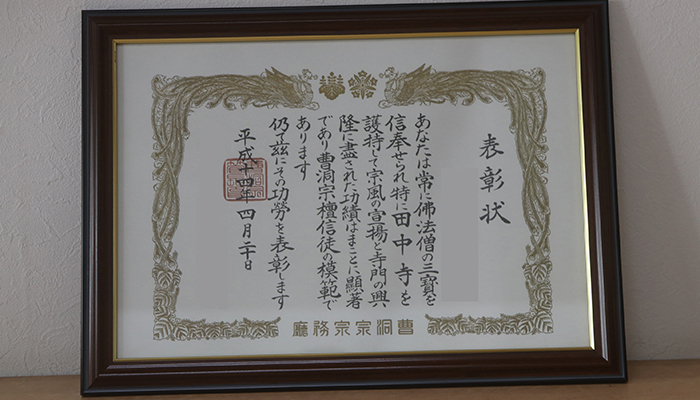 表彰状
あなたは常に佛法僧の三寳を
信奉せられ特に田中寺を
護持して宗風の宣揚と寺門の興
隆に盡された功績はまことに顕著
であり曹洞宗檀信徒の模範で
あります
仍て茲にその功勞を表彰します
平成十四年四月二十日
曹洞宗宗務廳